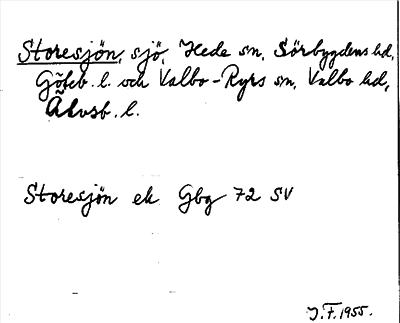 Storesjön, sjö, Hede sn, Sörbygdens hd,
Göteb. l. och Valbo-Ryrs sn, Valbo hd,
Älvsb. l.
Storesjön ek Gbg 72 SV
J.F. 1955.